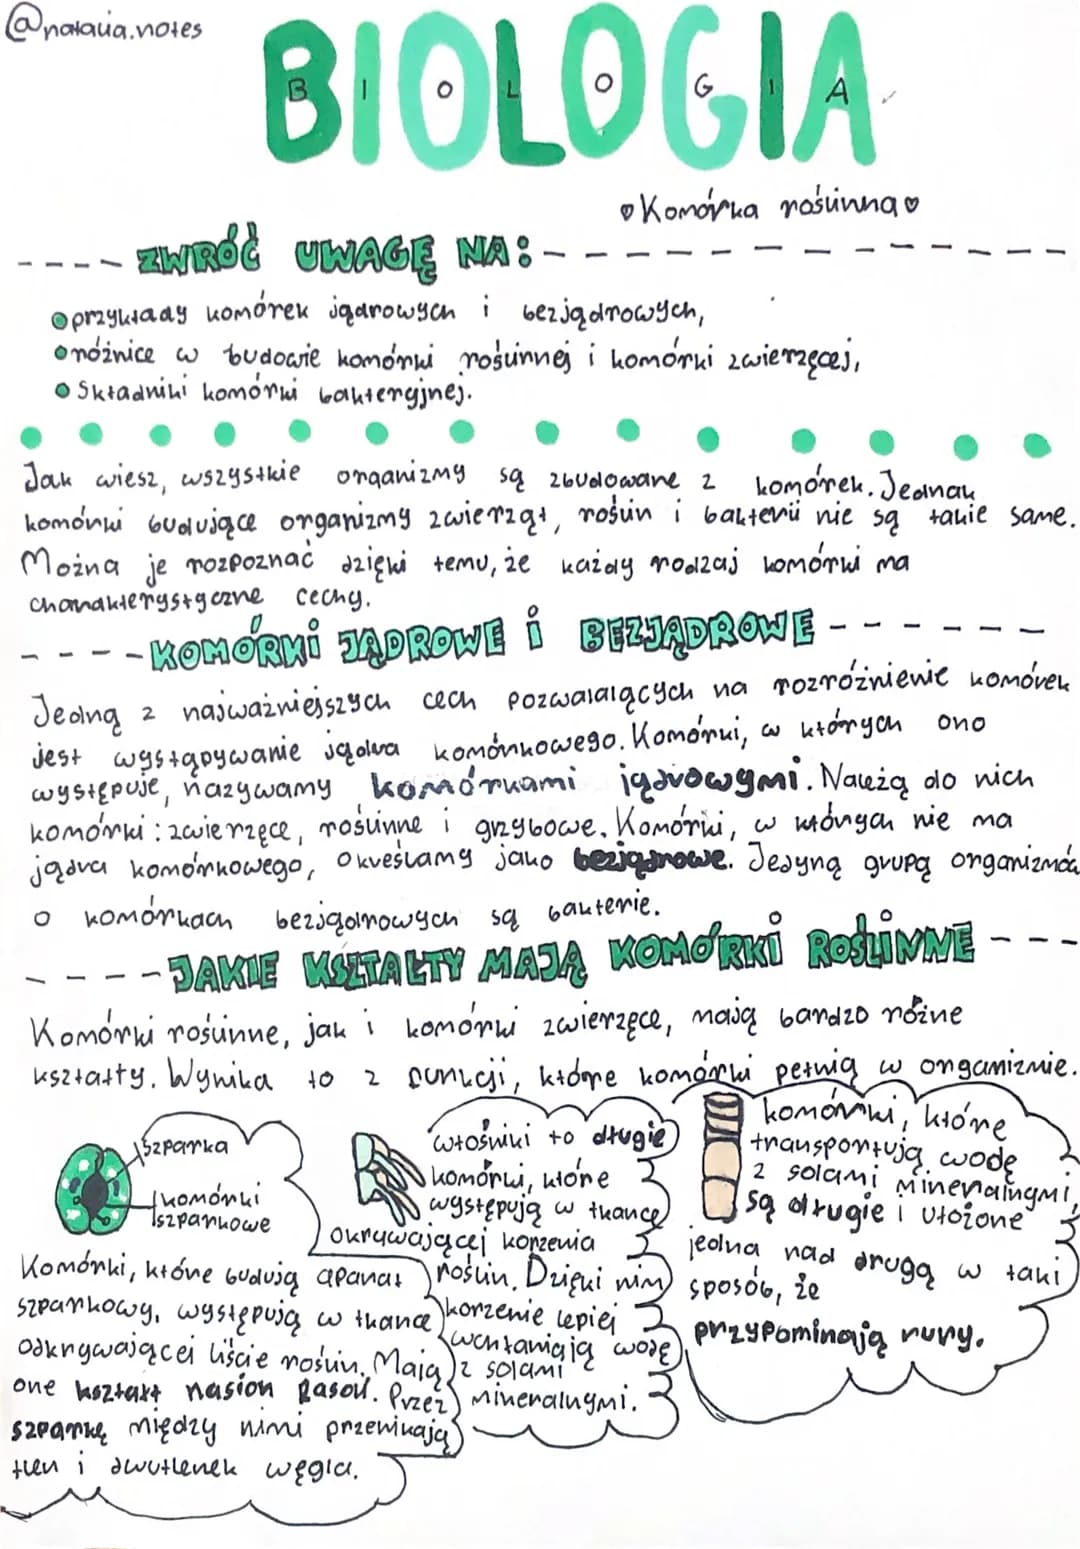 @natalia.notes
BIOLOGIA
B I O L O G I A
♡Komórka roślinna♡
ZWRÓĆ UWAGĘ NA:
przykłady komórek jądrowych i bezjądrowych,
różnice w budowie komórki roślinnej i komórki zwierzęcej,
Składniki komórki bakteryjnej.
Jak wiesz, wszystkie organizmy są zbudowane z komórek. Jednak
komórki budujące organizmy zwierząt, roślin i bakterii nie są takie same.
Można je rozpoznać dzięki temu, że każdy rodzaj komórki ma
charakterystyczne cechy.
KOMÓRKI JĄDROWE I BEZJĄDROWE
Jedną z najważniejszych cech pozwalających na rozróżnienie komórek
jest występywanie jądra komórkowego. Komórki, w których ono
występuje, nazywamy komórkami jądrowymi. Należą do nich
komórki: zwierzęce, roślinne i grzybowe. Komórki, w których nie ma
jądra komórkowego, określamy jako bezjądrowe. Jedyną grupą organizmów
o komórkach bezjądrowych są bakterie.
JAKIE KSZTAŁTY MAJĄ KOMÓRKI ROŚLINNE
Komórki roślinne, jak i komórki zwierzęce, mają bardzo różne
kształty. Wynika to z funkcji, które komórki pełnią w organizmie.
szparka
komórki
szparkowe
Komórki, które budują aparat
szparkowy, występują w tkance
odkrywającej liście roślin. Mają
one kształt nasion fasoli. Przez
szparkę między nimi przenikają
tlen i dwutlenek węgla.
włośniki to długie
komórki, które
występują w tkance
okrywającej korzenia
roślin. Dzięki nim
korzenie lepiej
wchłaniają wodę
z solami
mineralnymi.
komórki, które
transportują wodę
z solami mineralnymi,
są długie i ułożone
jedna nad drugą w taki
sposób, że
przypominają rury.